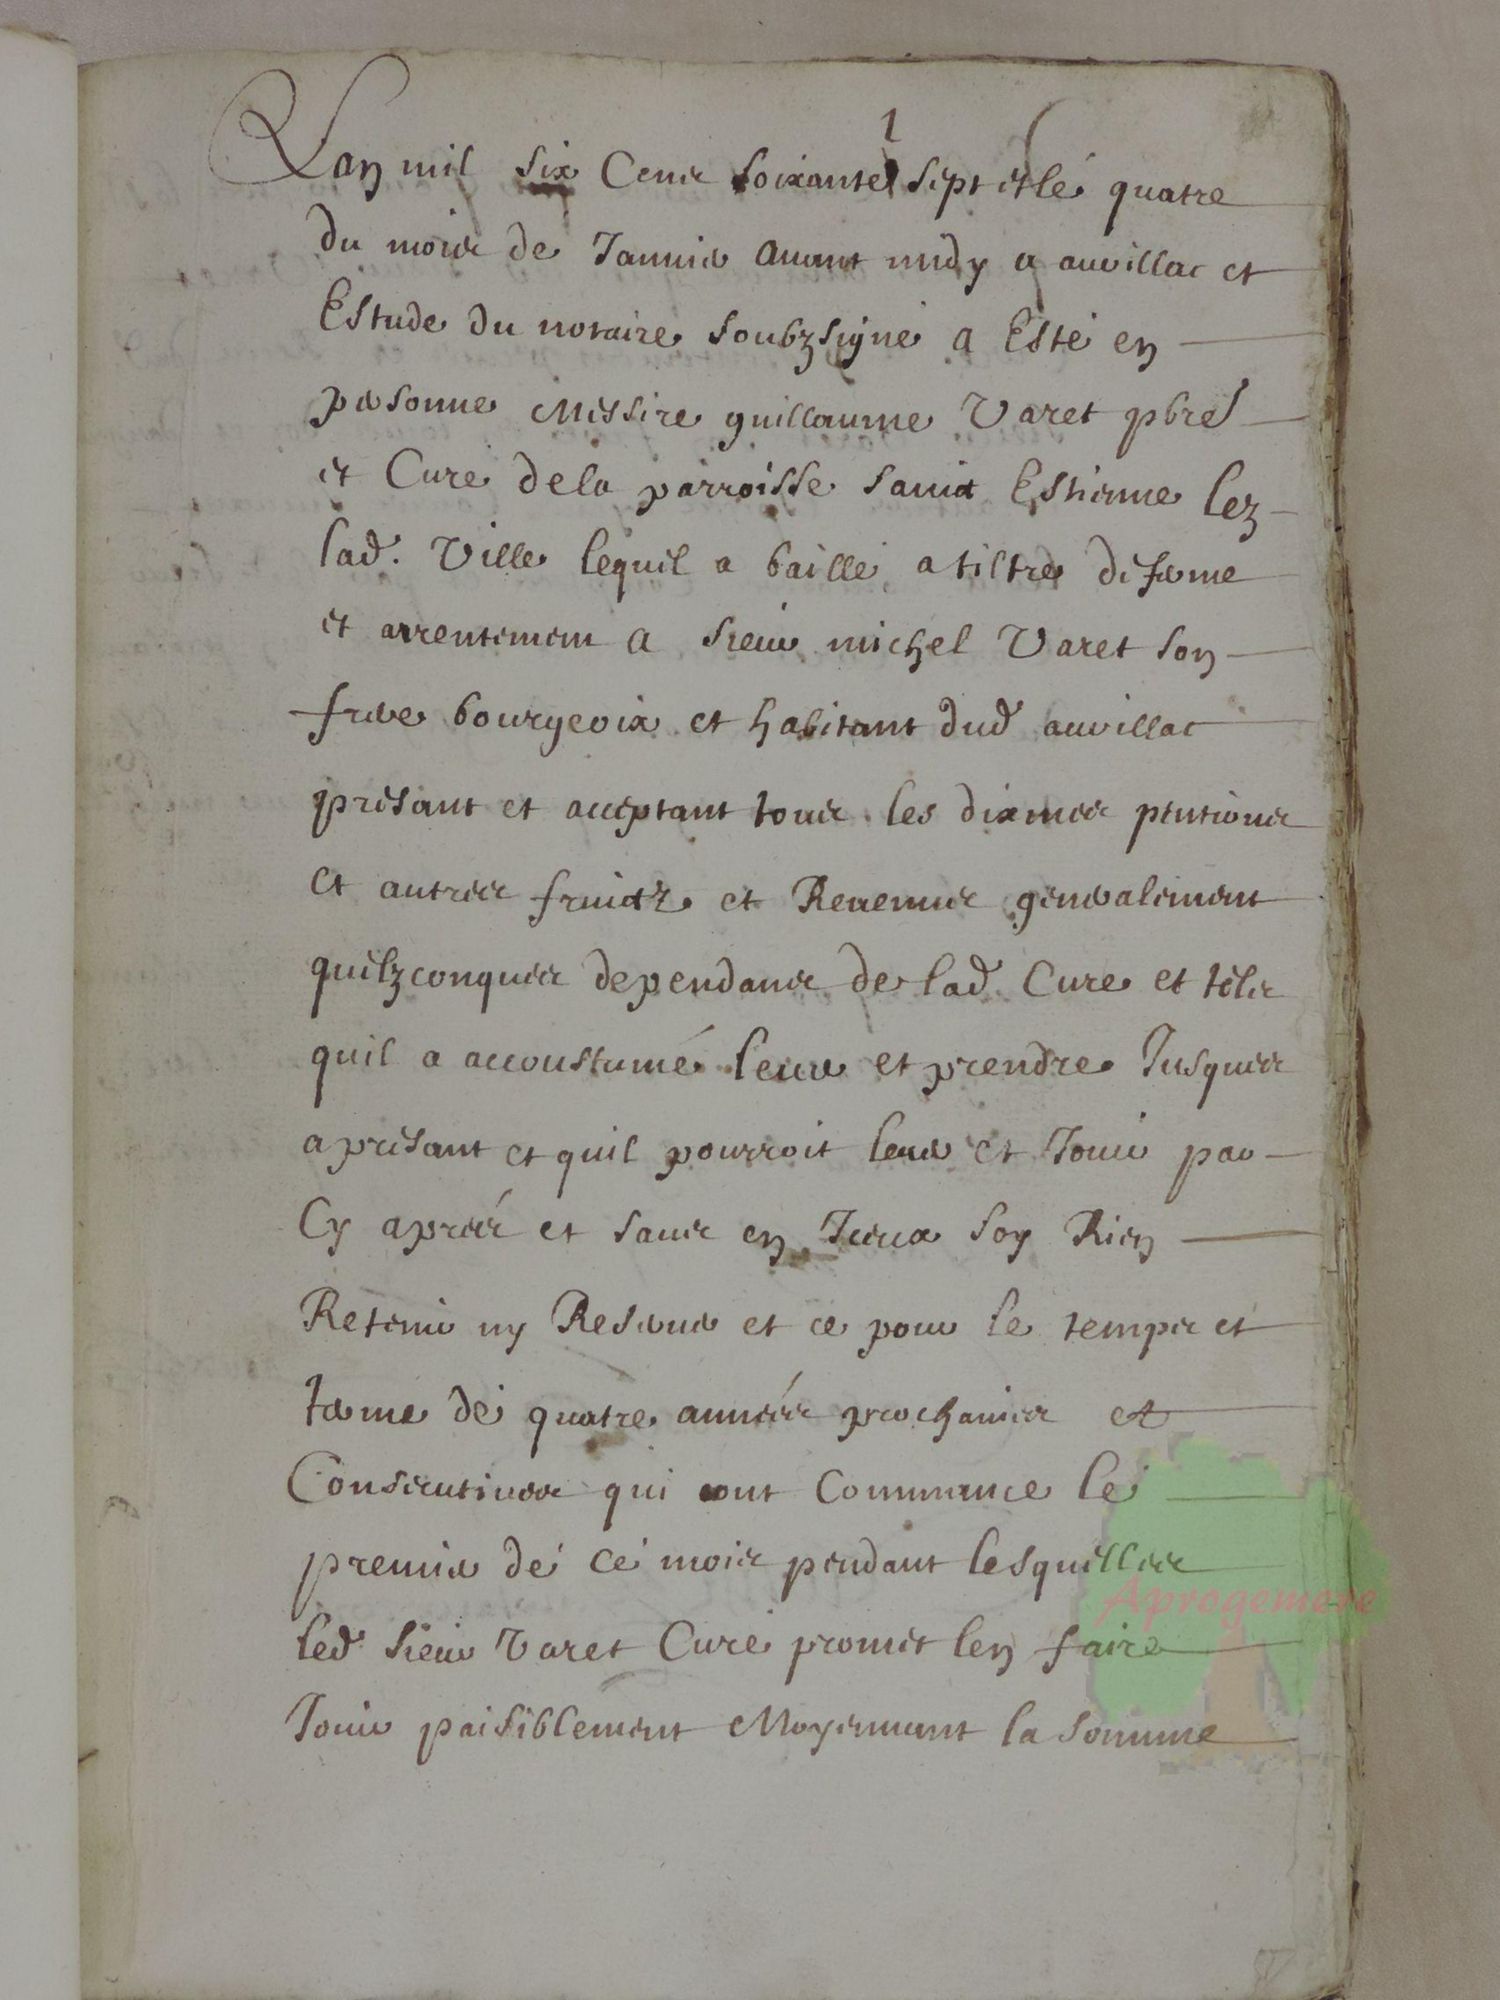 1
Lan mil six Cens soixante sept et le quatre
du mois de Januier auant midy a auvillar et
Estude du notaire soubzsigne a Esté en
personne Messire guillaume Varet pbre
et Curé dela parroisse sainct Estienne lez
lad. Ville lequel a baillé a tiltre de ferme
et arrentement a sieur michel Varet son
frere bourgeoix et habitant dud auvillar
présant et acceptant tous les dixmes pentions
et autres fruictz et Reuenus generalement
quelzconques dependans de lad Cure et telz
quil a accoustumé leuer et prendre Jusques
a présant et quil pourroit leuer et Jouir par
Cy aprés et sans en Iceux soy Rien
Retenir ny Reseruer et ce pour le temps et
terme de quatre années prochaines et
Consecutiues qui ont Commance le
premier de ce mois pendant lesquelles
led sieur Varet Curé promet len faire
Jouir paisiblement Moyennant la somme
Aprogemere